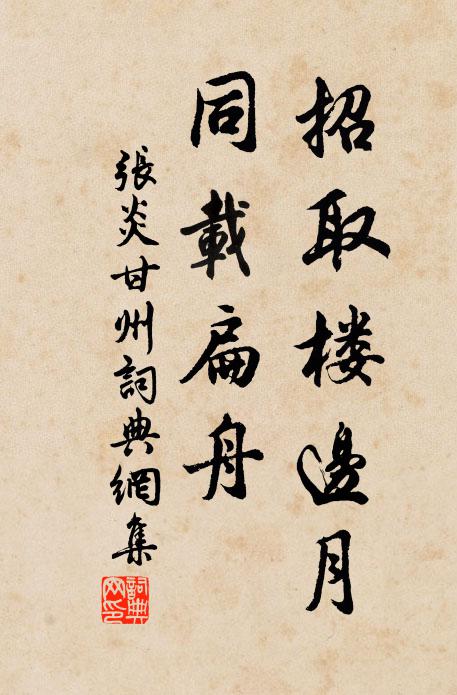 招取楼邊月
同載扁舟
張炎甘州詞典網集
詞典網印